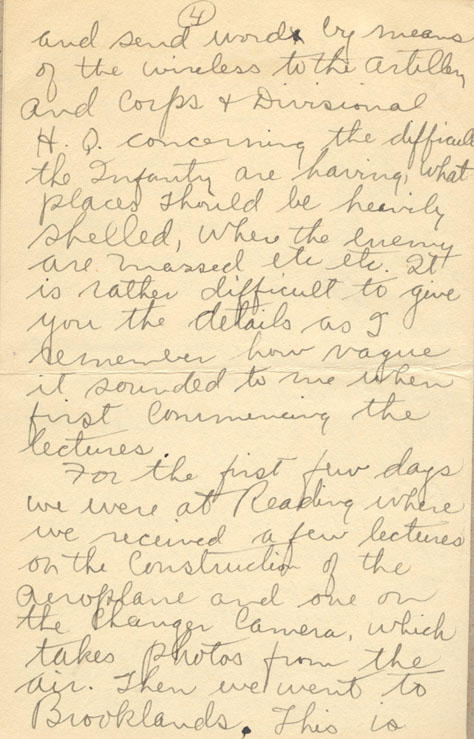 4
and send words by means
of the wireless to the artillery
and Corps & Divisional
H. Q. concerning the difficult
the Infantry are having, what
places should be heavily
shelled, where the enemy
are massed etc etc. It
is rather difficult to give
you the details as I
remember how vague
it sounded to me when
first commencing the
lectures.
For the first few days
we were at Reading where
we received a few lectures
on the Construction of the
aeroplane and one on
the Changer Camera, which
takes photos from the
air. Then we went to
Brooklands. This is